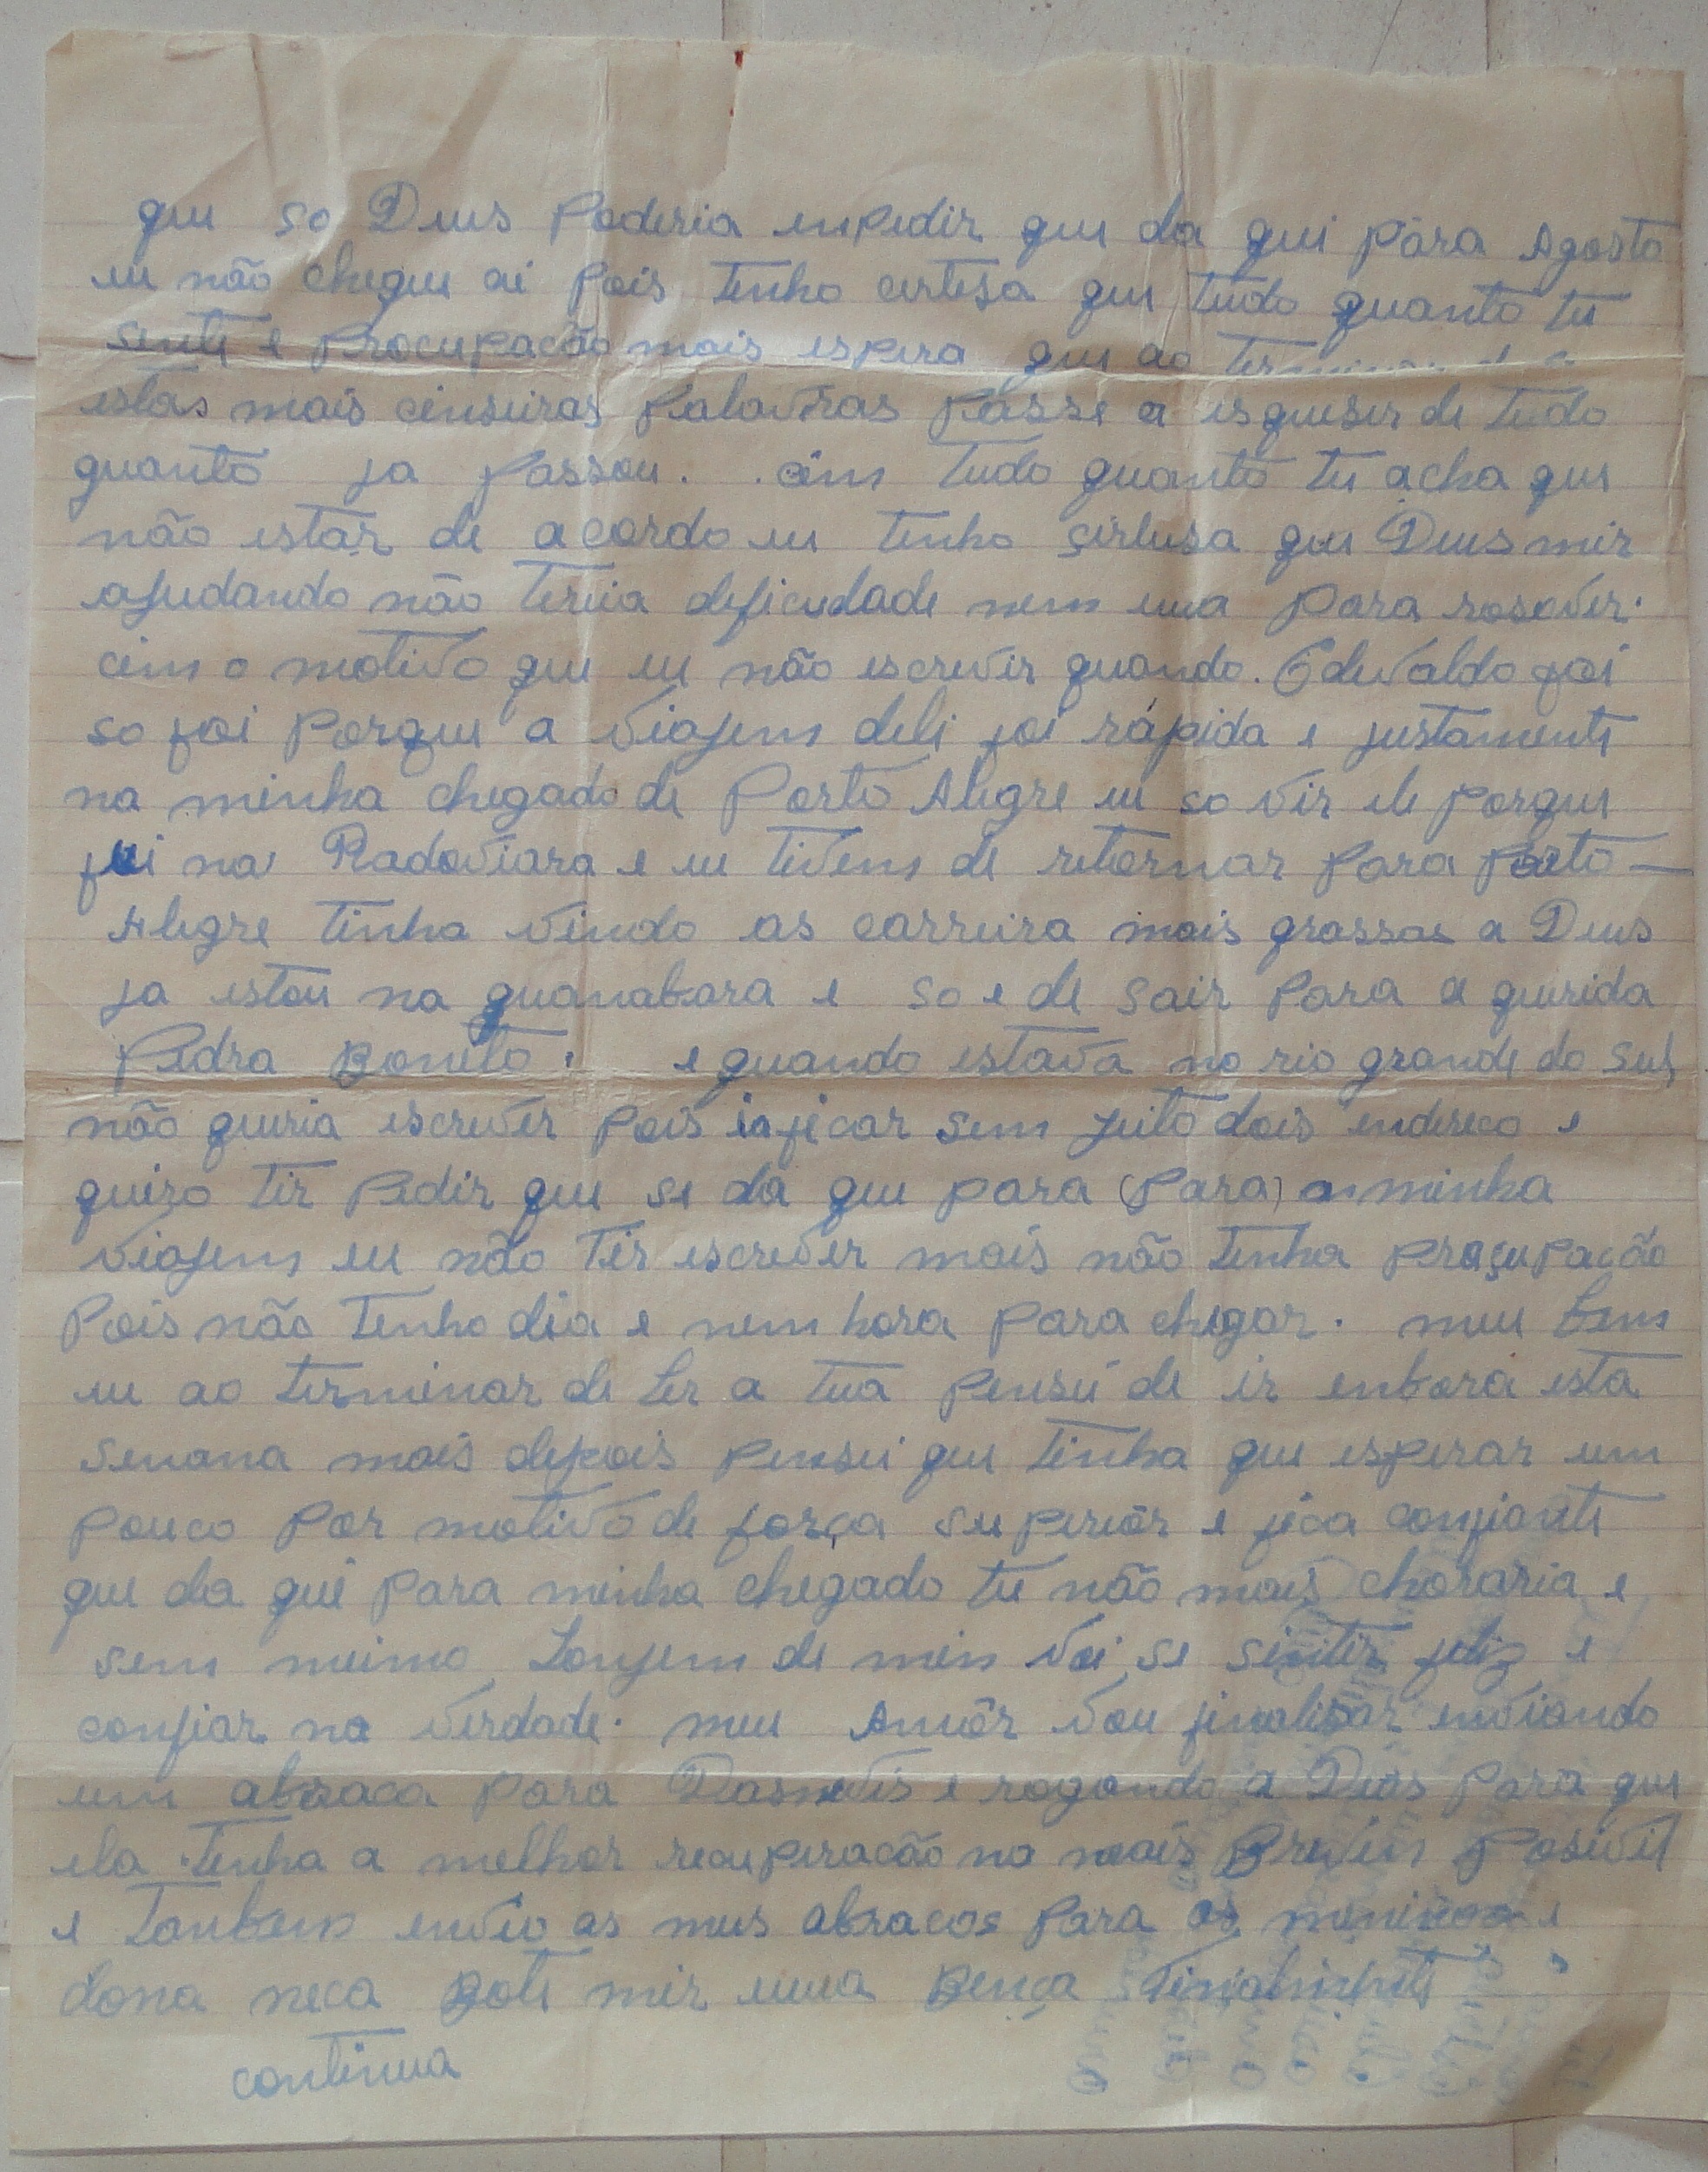 que so Deus Poderia enpedir que da qui pàra Agosto
eu não chegue ai Pois tenho certesa que tudo quanto tu
sente e Procupação mais espera que ao
estas mais cinseiras Palavras Passe a esqueser de tudo
quanto ja Passou. . cim tudo quanto tu acha que
não estar de acordo eu tenho certusa que Deus mir
ajudando não tereia deficudade nem uma Para rosover.
cim o motivo que eu não escrevir quando. Edevaldo foi
so foi Porque a viajem dele foi rápida e justamente
na minha chegado de Porto Alegre eu so vir ele Porque
fui na Radoviara e eu tivem de retornar Para Porto —
Alegre tinha vindo as carreira mais grassas a Deus
ja estou na guanabara e so e de sair Para a querida
Pedra Bonito. e quando estava no rio grande do sul
não queria escrever Pois ia ficar sem jeito dois endereco e
quizo tir Pedir que se da que para (Para) a minha
viajem eu não tir escrever mais não tenha Proçupacão
Pois não tenho dia e nem hora Para chegar. meu bem
eu ao terminar de Ler a tua Pensei de ir enbora esta
semana mais depois Pensei que tinha que esperar um
Pouco Por motivo de força superiôr e fica confiante
que da qui Para minha chegado tu não mais choraria e
sem meimo Lonjem de min vai se sintir feliz e
confiar na verdade. meu Amôr vou finalisar enviando
um abraca Para e rogando a Deos Para que
ela tenha a melhor recuperacão no mais Brevem Posivel
e tanbem envio as meus abracos Para os meninos e
dona neca Bote mir uma Bença
continua